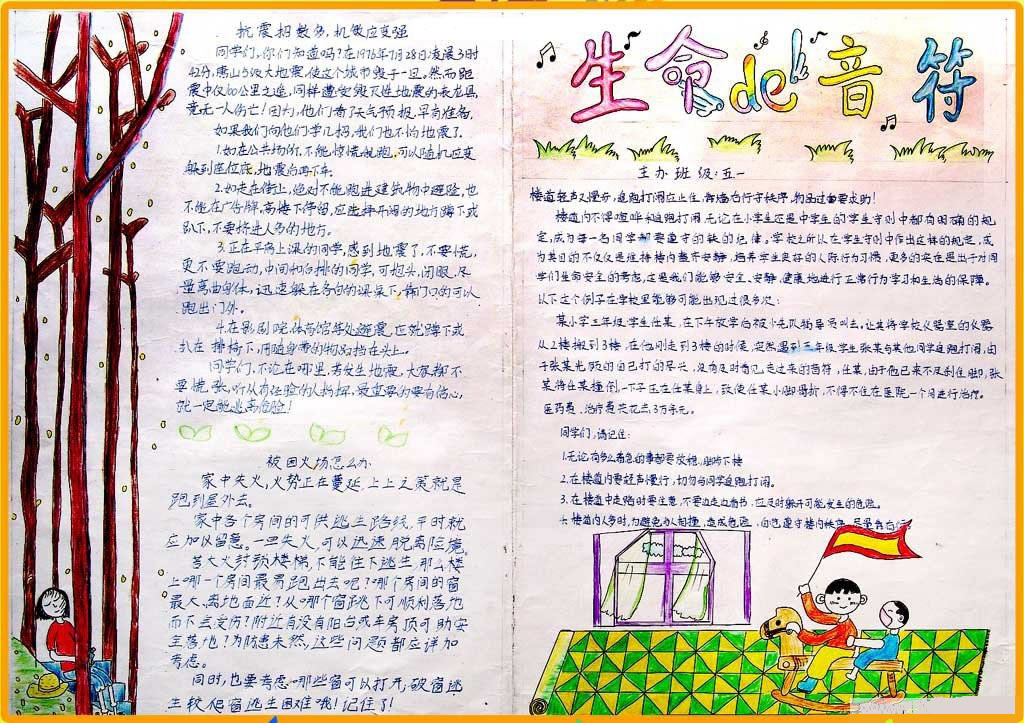 抗震招数多,机敏应变强
同学们,你们知道吗?在1976年7月28日凌晨3时
42分,唐山 大地震,使这个城市毁于一旦,然而距
震中仅 公里之遥,同样遭受毁灭性地震的 县,
竟无一人伤亡!因为,他们看了天气预报,早有准备,
如果我们向他们学几招,我们也不怕地震了。
1.如在公共场所,不能惊慌乱跑,可以随机应变
躲到座位底,地震后再下车。
2.如走在街上,绝对不能跑进建筑物中避险,也
不能在广告牌,高楼下停留,应选择开阔的地方蹲下或
趴下,不要挤进人多的地方。
3.正在平房上课的同学,感到地震了,不要慌,
更不要跑动,中间和后排的同学,可抱头,闭眼,尽
量 身体,迅速躲在各自的课桌下,靠门口的可以
跑出门外。
4.在影剧院,体育馆等处遇震,应就蹲下或
趴在排椅下,用随身带的物品挡在头上。
同学们,不论在哪里,若发生地震,大家都不
要慌张,听从有经验的人指挥,最重要的要有信心,
就一定能逃离危险!
被困火场怎么办
家中失火,火势正在蔓延,上上之策就是
跑到屋外去。
家中各个房间的可供逃生路线,平时就
应加以留意。一旦失火,可以迅速脱离险境。
若大火封锁楼梯,不能往下逃生,那么楼
上哪一个房间最易跑出去呢?哪个房间的窗
最大,离地面近?从哪个窗跳下可顺利落地
而不会受伤?附近有没有阳台或车房顶可助安
全落地?为防患未然,这些问题都应详加
考虑。
同时,也要考虑哪些窗可以打开,破窗逃
生较爬窗逃生困难哦!记住了!
生命de音符
主办班级:五一
楼道轻声又慢步,追跑打闹应止住,靠墙右行守秩序,物品过重要求助!
楼道内不得喧哗和追跑打闹,无论在小学生还是中学生的学生守则中都有明确的规
定,成为每一名同学都要遵守的铁的纪律。学校之所以在学生守则中作出这样的规定,成
为其目的不仅仅是维持楼内整齐安静,培养学生良好的人际行为习惯,更多的实在是出于对同
学们生命安全的考虑,这是我们能够安全、安静、健康地进行正常行为学习和生活的保障。
以下这个例子在学校里能够可能出现过很多次:
某小学三年级学生任某,在下午放学后被少先队辅导员叫去,让其将学校仪器室的仪器
从2楼搬到3楼,在他刚走到3楼的时候,突然遇到三年级学生张某与其他同学追跑打闹,由
于张某光顾自己打的尽兴,没有及时看见走过来的 ,任某,由于他已来不及刹住脚,张
某将任某撞倒,一下子压在任某身上,致使任某小脚骨折,不得不住在医院一个月进行治疗。
医药费、治疗费共花去3万多元。
同学们,请记住:
1.无论有多么着急的事都要放稳,脚步下楼
2.在楼道内要轻声慢行,切勿与同学追跑打闹。
3.在楼道中走路时要注意,不要边走边看书,应及时躲开可能发生的危险。
4.楼道内人多时,为避免与人相撞,造成危险,自觉遵守楼内秩序,尽量靠右行。